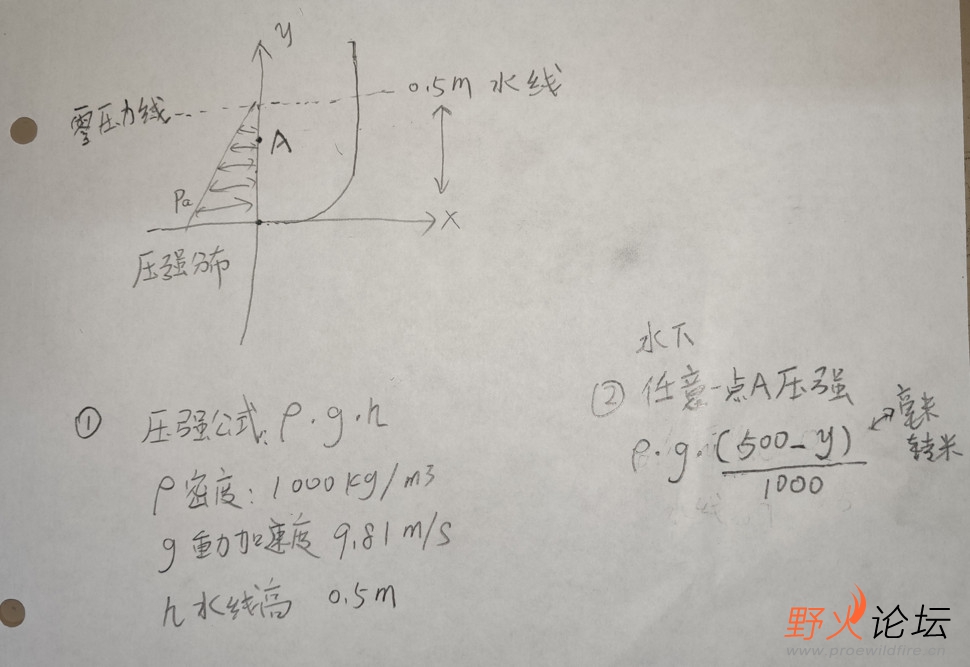 y
零压力线
0.5m 水线
A
Pa
X
压强分布
① 压强公式: ρ·g·h
ρ密度: 1000 kg/m3
g 重力加速度 9.81 m/s
h 水线高 0.5m
水下
② 任意一点A压强
ρ·g·(500-y)
1000
毫米
转米
野火论坛
www.proewildfire.cn